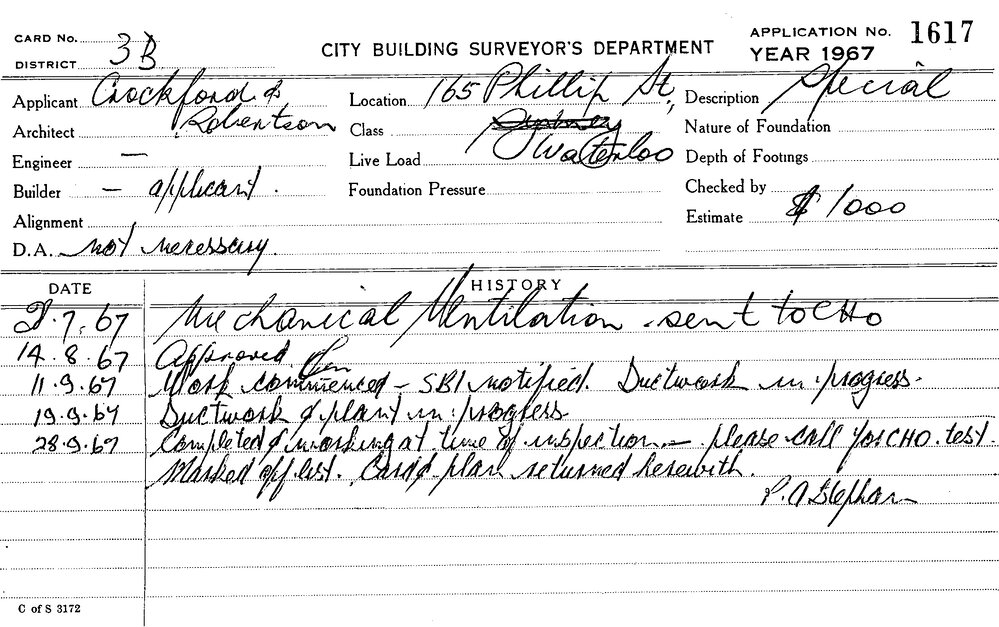 CARD No.
DISTRICT 3B
CITY BUILDING SURVEYOR'S DEPARTMENT
APPLICATION No. 1617
YEAR 1967
Applicant Crockford &
Architect Robertson
Engineer —
Builder — applicant.
Alignment
D.A. not necessary.
Location 165 Phillip St,
Class Sydney
Live Load Waterloo
Foundation Pressure
Description Special
Nature of Foundation
Depth of Footings
Checked by
Estimate $ 1000
DATE HISTORY
7.67 Mechanical Ventilation - sent to CHO
14.8.67 Approved
11.9.67 Work commenced - SBI notified. Ductwork in progress.
19.9.67 Ductwork & plant in progress
28.9.67 Completed & working at time of inspection - please call for CHO. test.
Marked off list. Card & plan returned herewith.
P. A Stephan
C of S 3172